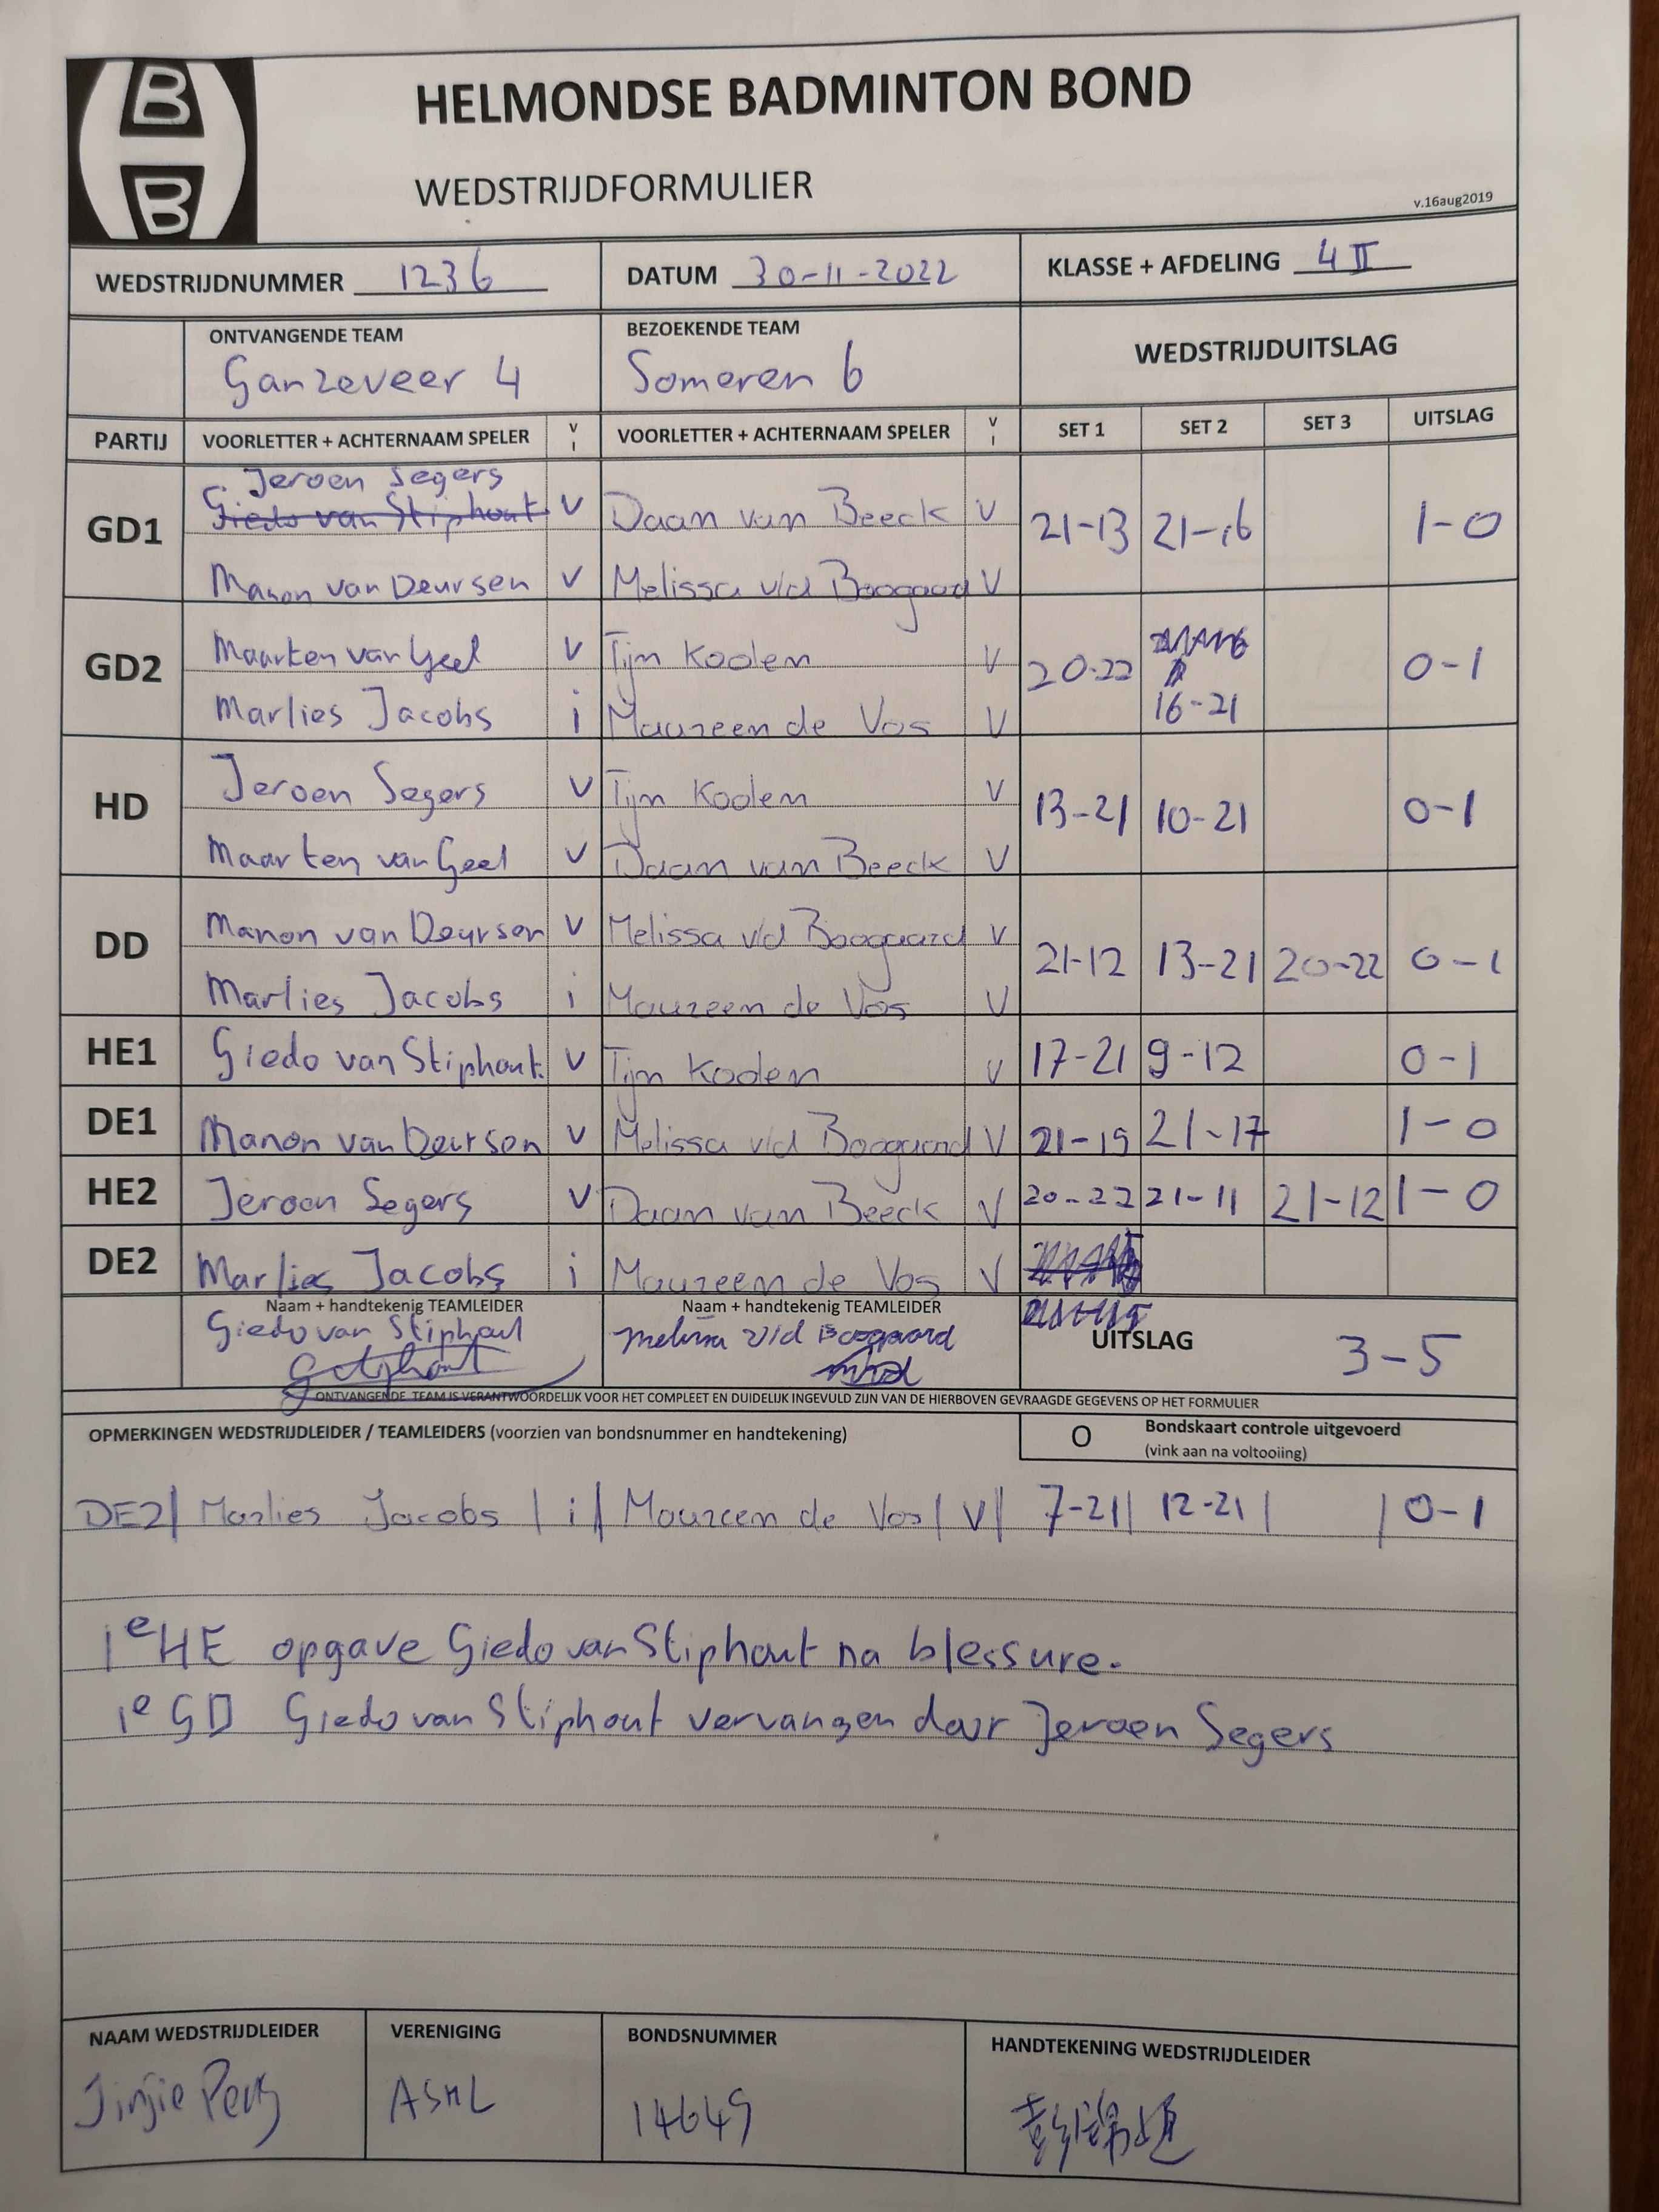 B
B
HELMONDSE BADMINTON BOND
WEDSTRIJDFORMULIER
v.16aug2019
WEDSTRIJDNUMMER 1236 DATUM 30-11-2022 KLASSE + AFDELING 4 II
ONTVANGENDE TEAM BEZOEKENDE TEAM WEDSTRIJDUITSLAG
Ganzeveer 4 Someren 6
PARTIJ VOORLETTER + ACHTERNAAM SPELER V I VOORLETTER + ACHTERNAAM SPELER V I SET 1 SET 2 SET 3 UITSLAG
Jeroen Segers
GD1 Giedo van Stiphout V Daan van Beeck V 21-13 21-16 1-0
Manon van Deursen V Melissa v/d Boogaard V
GD2 Maarten van Geel V Tijn Koolen V 20-22 0-1
Marlies Jacobs i Maureen de Vos V 16-21
HD Jeroen Segers V Tijn Koolen V 13-21 10-21 0-1
Maarten van Geel V Daan van Beeck V
DD Manon van Deursen V Melissa v/d Boogaard V 21-12 13-21 20-22 0-1
Marlies Jacobs i Maureen de Vos V
HE1 Giedo van Stiphout. V Tijn Koolen V 17-21 9-12 0-1
DE1 Manon van Deursen V Melissa v/d Boogaard V 21-19 21-17 1-0
HE2 Jeroen Segers V Daan van Beeck V 20-22 21-11 21-12 1-0
DE2 Marlies Jacobs i Maureen de Vos V
Naam + handtekenig TEAMLEIDER Naam + handtekenig TEAMLEIDER
Giedo van Stiphout Melissa v/d Boogaard UITSLAG 3-5
ONTVANGENDE TEAM IS VERANTWOORDELIJK VOOR HET COMPLEET EN DUIDELIJK INGEVULD ZIJN VAN DE HIERBOVEN GEVRAAGDE GEGEVENS OP HET FORMULIER
OPMERKINGEN WEDSTRIJDLEIDER / TEAMLEIDERS (voorzien van bondsnummer en handtekening) O Bondskaart controle uitgevoerd
(vink aan na voltooiing)
DE2 | Marlies Jacobs | i | Maureen de Vos | V | 7-21 | 12-21 | | 0-1
1e HE opgave Giedo van Stiphout na blessure.
1e GD Giedo van Stiphout vervangen door Jeroen Segers
NAAM WEDSTRIJDLEIDER VERENIGING BONDSNUMMER HANDTEKENING WEDSTRIJDLEIDER
Jinjie Peng ASML 14649